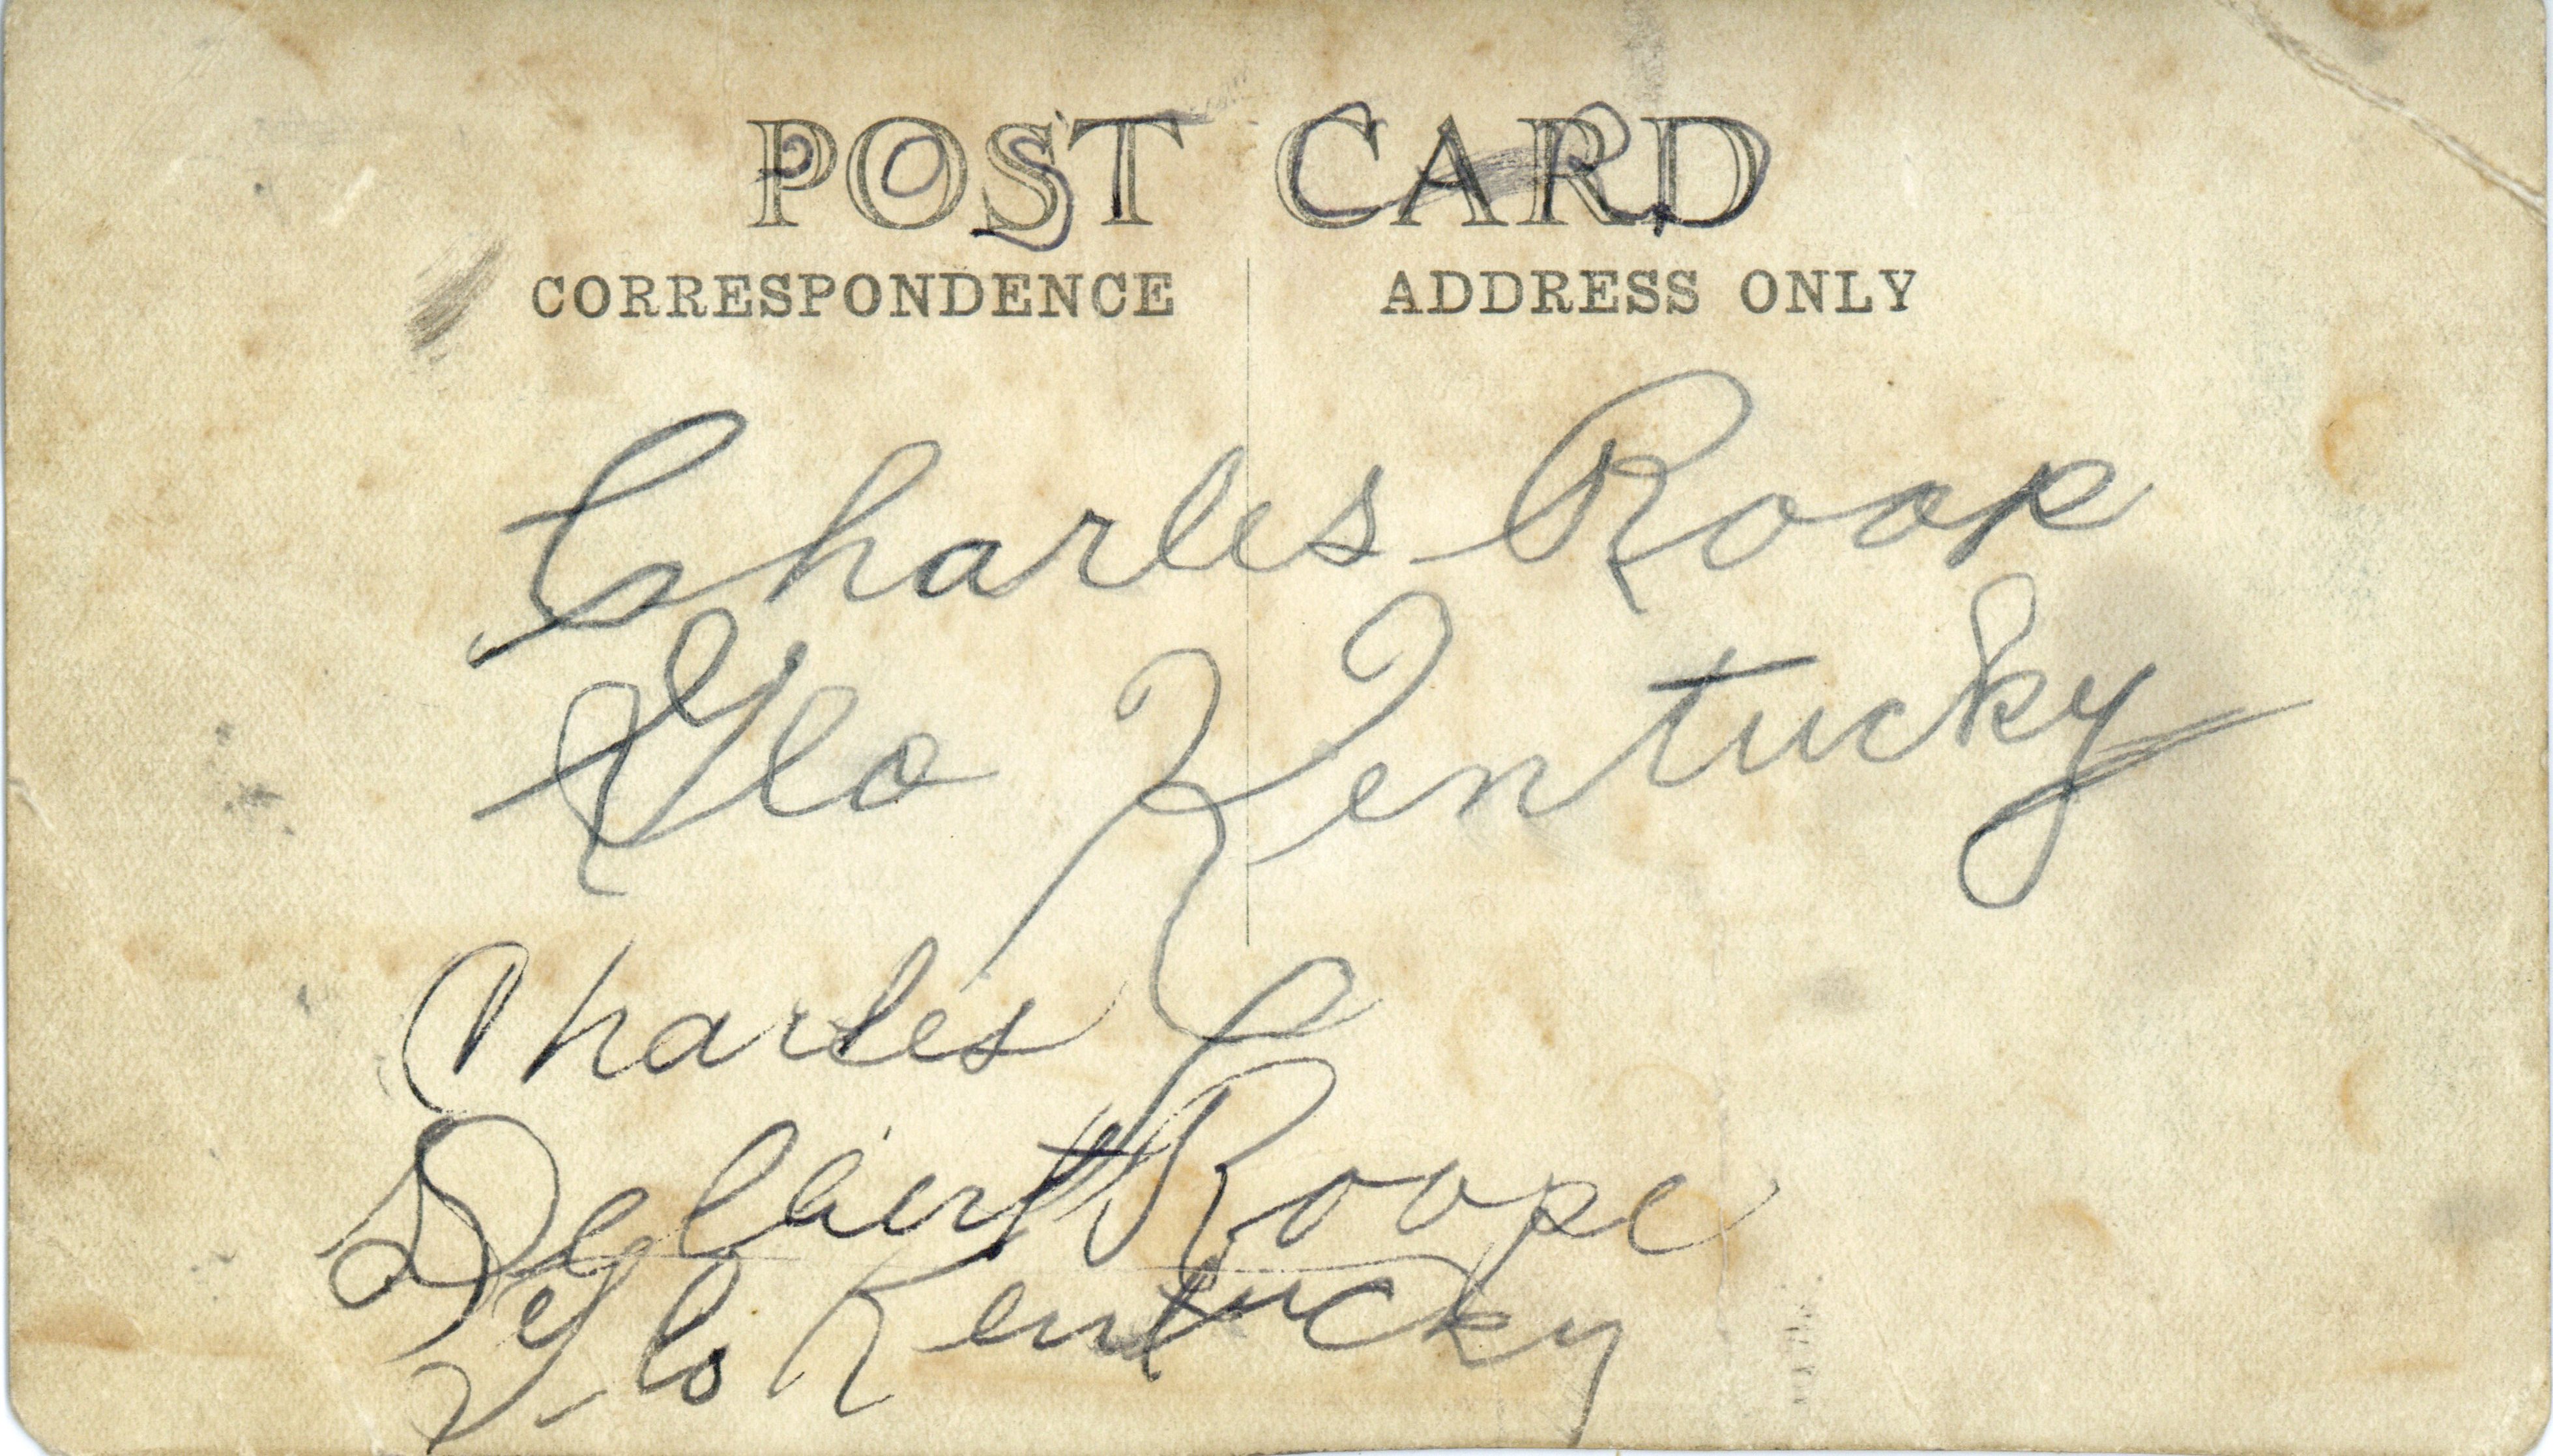 POST CARD
CORRESPONDENCE ADDRESS ONLY
Charles Roop
Glo Kentucky
Charles
Delbert Roope
Glo Kentucky